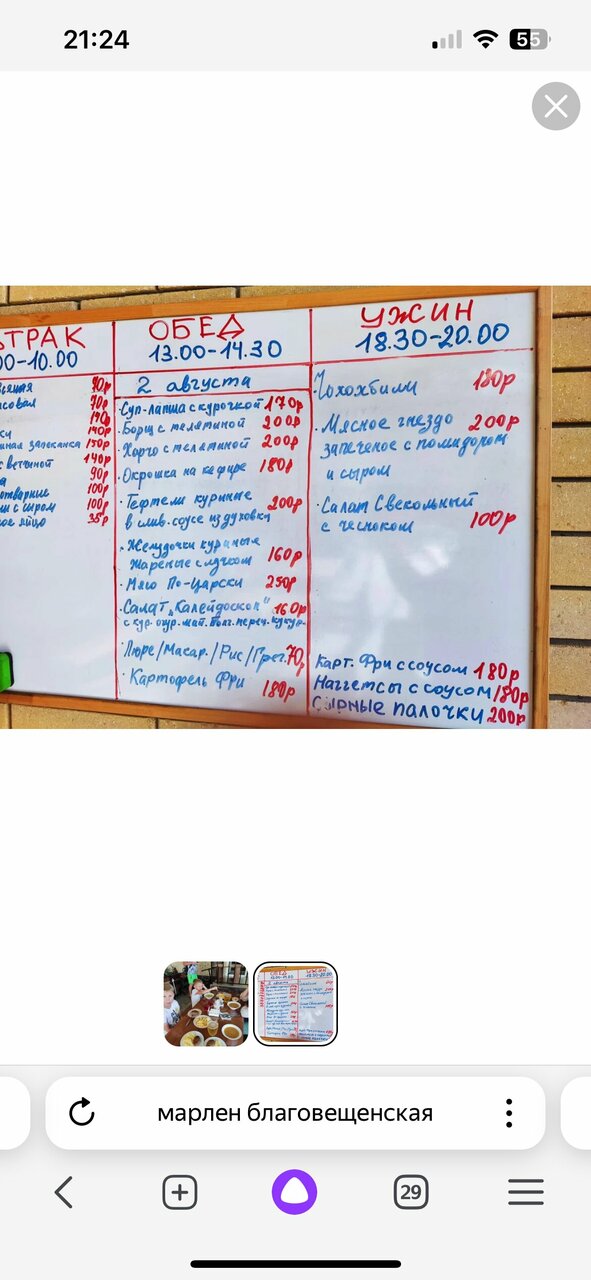 21:24
55
ТРАК
00-10.00
90р
70р
190р
190р
запеканка 150р
с ветчиной 140р
90р
100р
с сыром 100р
яйцо 35р
ОБЕД
13.00-14.30
2 августа
Суп-лапша с курочкой 170р
Борщ с телятиной 200р
Харчо с телятиной 200р
Окрошка на кефире 180р
Тефтели куриные 200р
в слив. соусе из духовки
Желудочки куриные
жареные с лучком 160р
Мясо По-Царски 250р
Салат "Калейдоскоп" 160р
с кур. огур. мит. болг. переч. кукур.
Пюре/Макар./Рис/Греч. 70р
Картофель Фри 180р
УЖИН
18.30-20.00
Чохохбили 180р
Мясное гнездо 200р
запеченое с помидором
и сыром
Салат Свекольный
с чесноком 100р
Карт. Фри с соусом 180р
Наггетсы с соусом 180р
Сырные палочки 200р
марлен благовещенская
29